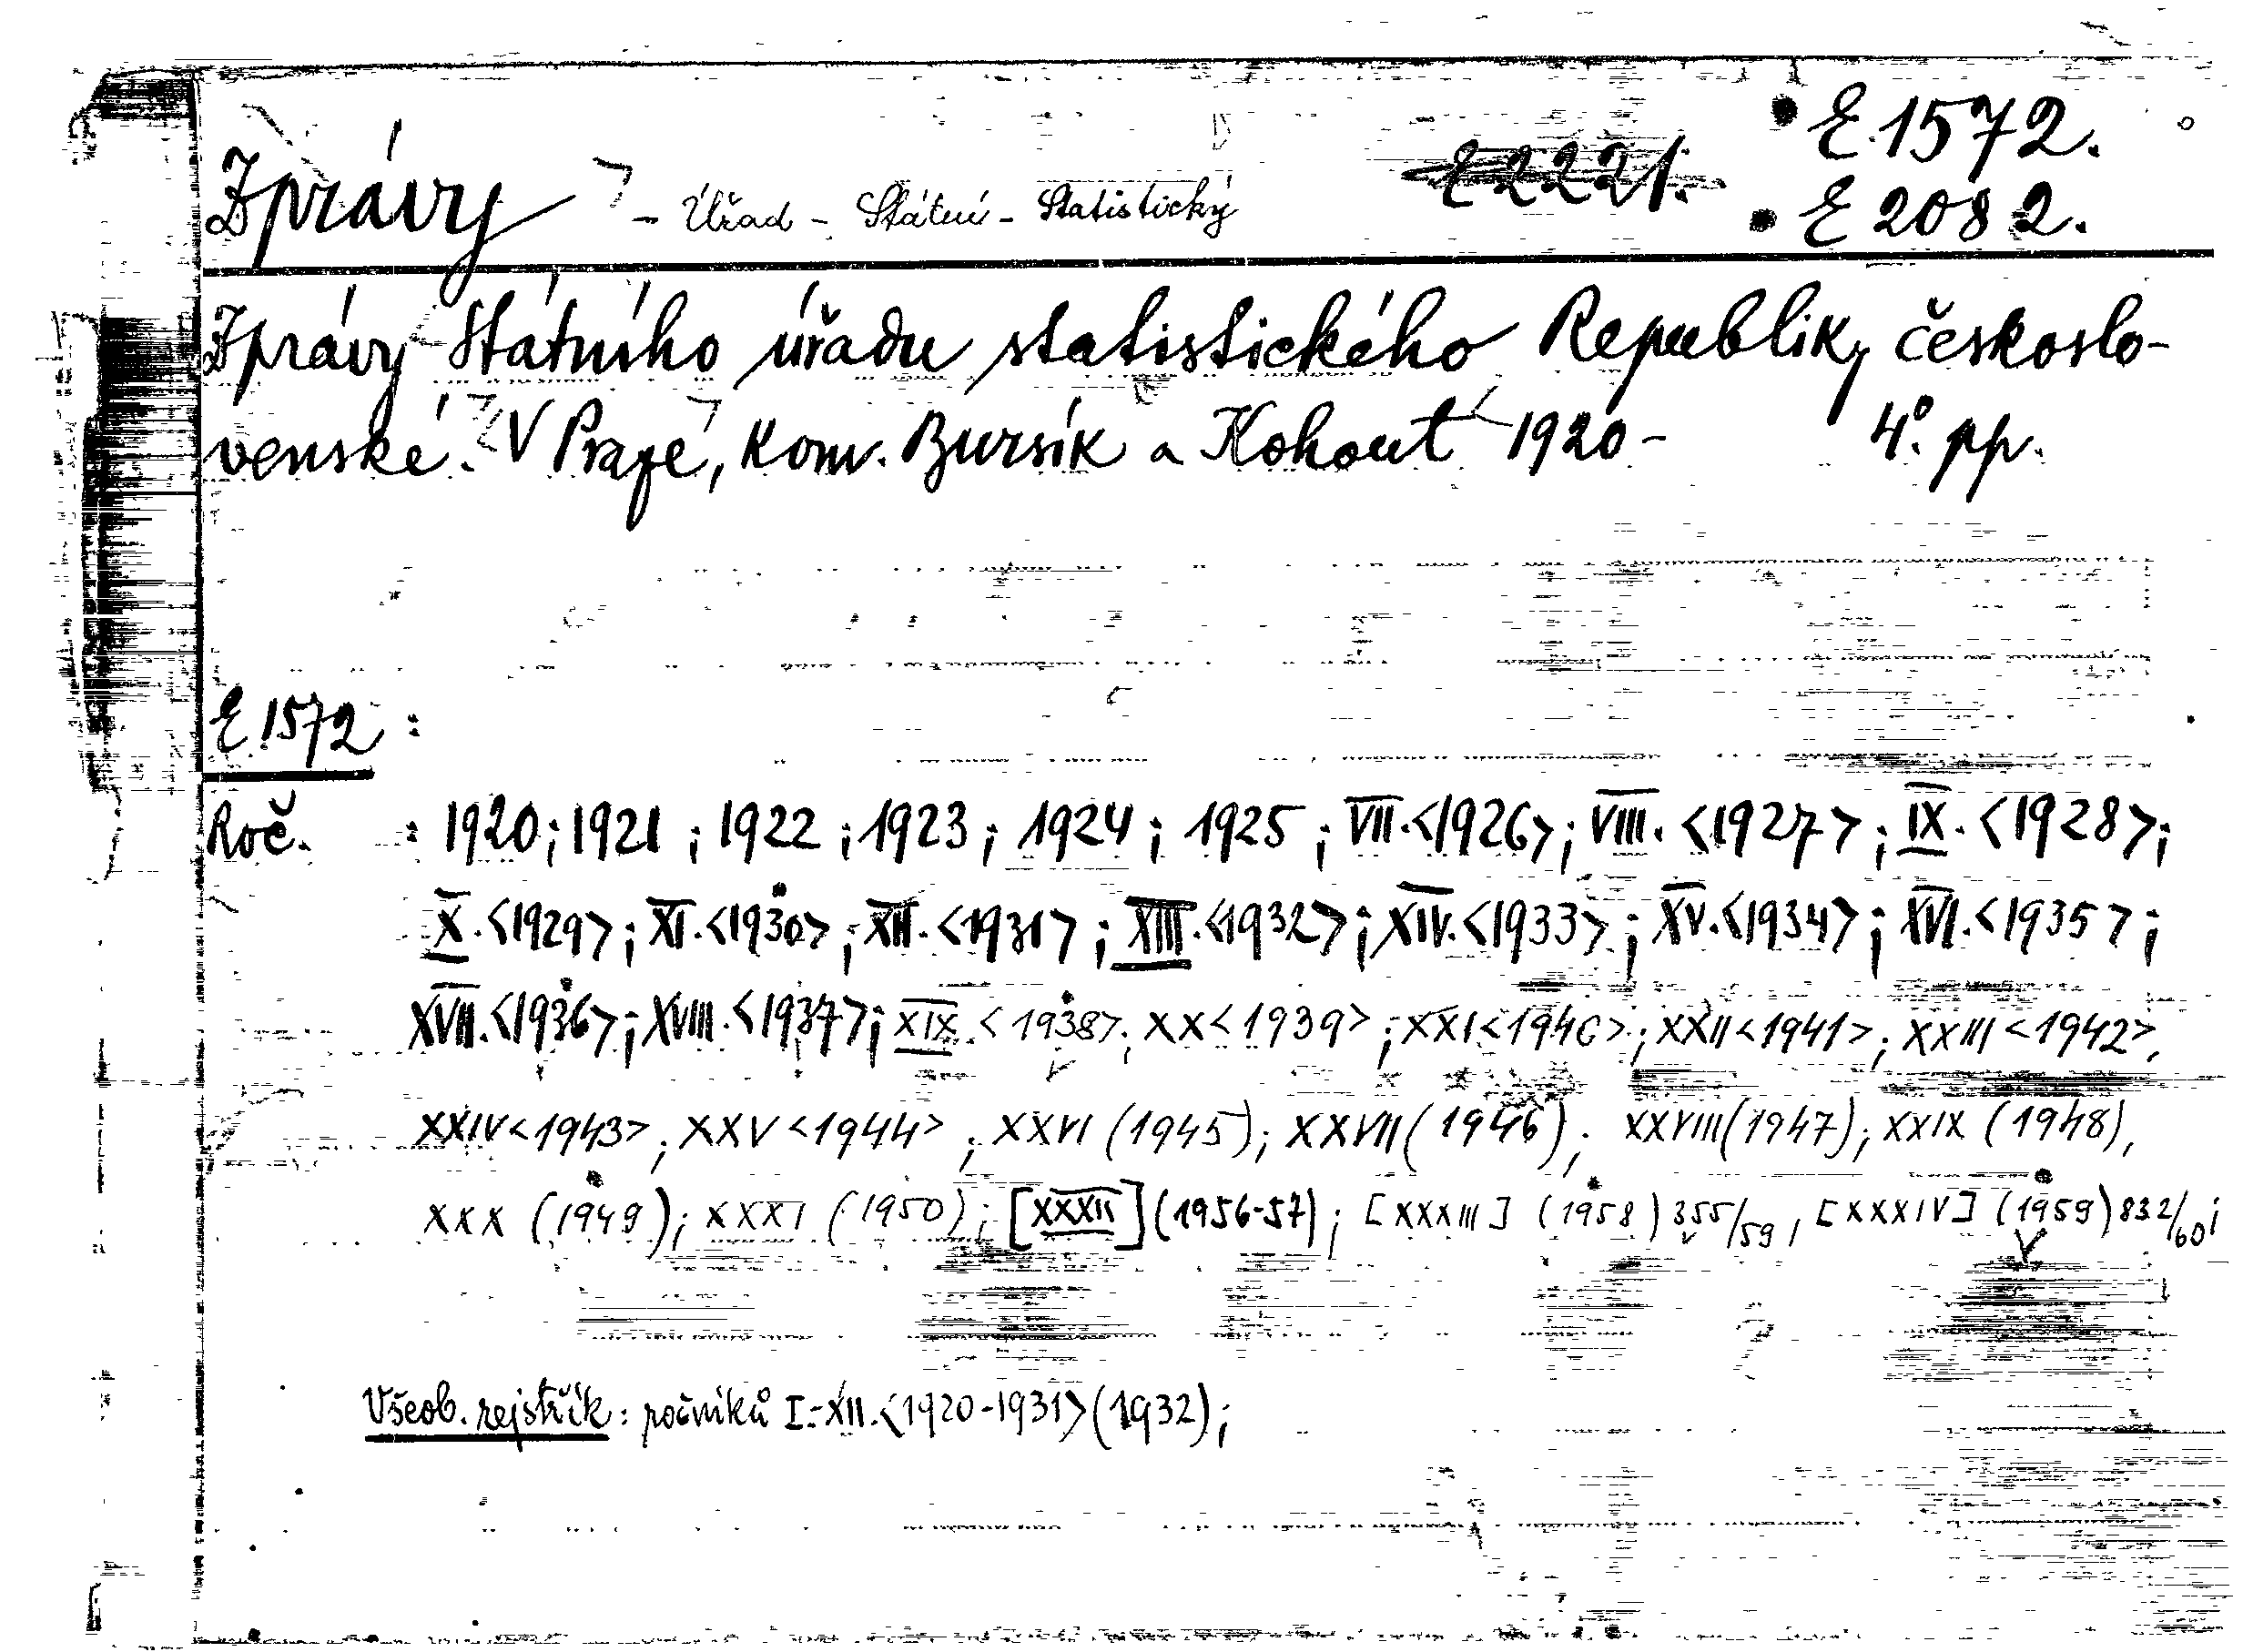 Zprávy - Úřad - Státní - Statistický E 2221. E 1572.
E 2082.
Zprávy Státního úřadu statistického Republiky českoslo-
venské. V Praze, kom. Bursík a Kohout 1920- 4°. pp.
E 1572 :
Roč. : 1920; 1921 ; 1922 ; 1923 ; 1924 ; 1925 ; VII.<1926>; VIII. <1927>; IX. <1928>;
X.<1929>; XI.<1930>; XII.<1931>; XIII.<1932>; XIV.<1933>; XV.<1934>; XVI.<1935>;
XVII.<1936>; XVIII.<1937>; XIX.<1938>; XX<1939>; XXI<1940>; XXII<1941>; XXIII<1942>,
XXIV<1943>; XXV<1944> ; XXVI (1945); XXVII (1946); XXVIII (1947); XXIX (1948),
XXX (1949); XXXI (1950); [XXXII] (1956-57); [XXXIII] (1958) 355/59, [XXXIV] (1959) 832/60;
Všeob. rejstřík: ročníků I.-XII.<1920-1931>(1932);